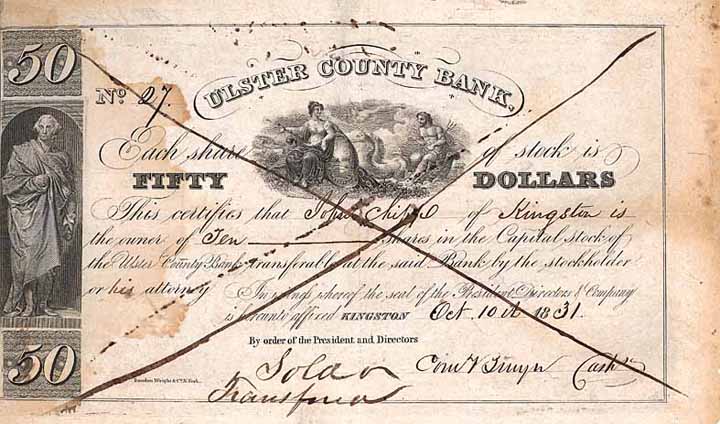 50
ULSTER COUNTY BANK.
No. 27.
Each share of stock is
FIFTY DOLLARS
This certifies that John Chipp of Kingston is
the owner of Ten Shares in the Capital Stock of
the Ulster County Bank transferable at the said Bank by the stockholder
or his attorney
In witness whereof the seal of the President Directors & Company
is hereunto affixed KINGSTON Oct. 10th 1831.
By order of the President and Directors
50
Rawdon Wright & Co. N. York.
Sold or
Transferred
Cash